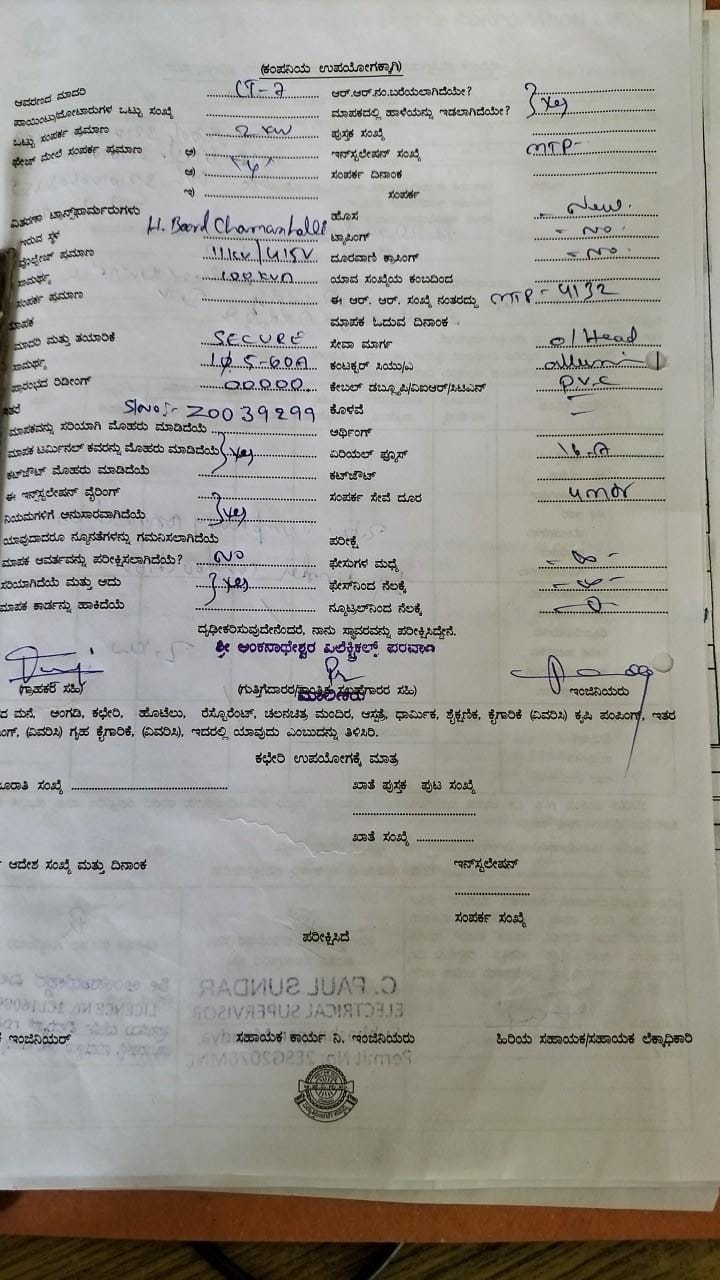 (ಕಂಪನಿಯ ಉಪಯೋಗಕ್ಕಾಗಿ)
ಆವರಣದ ಮಾದರಿ CT-7 ಆರ್.ಆರ್.ನಂ.ಬರೆಯಲಾಗಿದೆಯೇ?
ಪಾಯಿಂಟು/ಮೋಟಾರುಗಳ ಒಟ್ಟು ಸಂಖ್ಯೆ ಮಾಪಕದಲ್ಲಿ ಹಾಳೆಯನ್ನು ಇಡಲಾಗಿದೆಯೇ? } yes
ಒಟ್ಟು ಸಂಪರ್ಕ ಪ್ರಮಾಣ 2 KW ಪುಸ್ತಕ ಸಂಖ್ಯೆ
ಫೇಜ್ ಮೇಲೆ ಸಂಪರ್ಕ ಪ್ರಮಾಣ ಅ) ಇನ್‌ಸ್ಟಲೇಷನ್ ಸಂಖ್ಯೆ MTP-
ಆ) ಸಂಪರ್ಕ ದಿನಾಂಕ
ಇ) ಸಂಪರ್ಕ
ವಿತರಣಾ ಟ್ರಾನ್ಸ್‌ಫಾರ್ಮರುಗಳು ಹೊಸ - New.
ಇರುವ ಸ್ಥಳ H. Board Chamanhalli ಟ್ಯಾಪಿಂಗ್ - No.
ವೋಲ್ಟೇಜ್ ಪ್ರಮಾಣ 11KV/415V ದೂರವಾಣಿ ಕ್ರಾಸಿಂಗ್ - No.
ಸಾಮರ್ಥ್ಯ 100 KVA ಯಾವ ಸಂಖ್ಯೆಯ ಕಂಬದಿಂದ
ಸಂಪರ್ಕ ಪ್ರಮಾಣ ಈ ಆರ್. ಆರ್. ಸಂಖ್ಯೆ ನಂತರದ್ದು MTP-4132
ಮಾಪಕ ಮಾಪಕ ಓದುವ ದಿನಾಂಕ
ಮಾದರಿ ಮತ್ತು ತಯಾರಿಕೆ SECURE ಸೇವಾ ಮಾರ್ಗ o/Head
ಸಾಮರ್ಥ್ಯ 1φ 5-60A ಕಂಟಕ್ಟರ್ ಸಿಯು/ಎ
ಪ್ರಾರಂಭದ ರಿಡೀಂಗ್ 00000 ಕೇಬಲ್ ಡಬ್ಲ್ಯೂಪಿ/ವಿಐಆರ್/ಸಿಟಿಎನ್ P.V.C
ಇತರೆ S/No:- Z0039299 ಕೊಳವೆ -
ಮಾಪಕವನ್ನು ಸರಿಯಾಗಿ ಮೊಹರು ಮಾಡಿದೆಯೆ ಅರ್ಥಿಂಗ್
ಮಾಪಕ ಟರ್ಮಿನಲ್ ಕವರನ್ನು ಮೊಹರು ಮಾಡಿದೆಯೆ } yes ಏರಿಯಲ್ ಫ್ಯೂಸ್ 16-A
ಕಟ್‌ಜೌಟ್ ಮೊಹರು ಮಾಡಿದೆಯೆ ಕಟ್‌ಜೌಟ್
ಈ ಇನ್‌ಸ್ಟಲೇಷನ್ ವೈರಿಂಗ್ ಸಂಪರ್ಕ ಸೇವೆ ದೂರ
ನಿಯಮಗಳಿಗೆ ಅನುಸಾರವಾಗಿದೆಯೆ } yes
ಯಾವುದಾದರೂ ನ್ಯೂನತೆಗಳನ್ನು ಗಮನಿಸಲಾಗಿದೆಯೆ ಪರೀಕ್ಷೆ
ಮಾಪಕ ಆವರ್ತವನ್ನು ಪರೀಕ್ಷಿಸಲಾಗಿದೆಯೆ? NO ಫೇಸುಗಳ ಮಧ್ಯೆ
ಸರಿಯಾಗಿದೆಯೆ ಮತ್ತು ಅದು } yes ಫೇಸ್‌ನಿಂದ ನೆಲಕ್ಕೆ
ಮಾಪಕ ಕಾರ್ಡನ್ನು ಹಾಕಿದೆಯೆ ನ್ಯೂಟ್ರಲ್‌ನಿಂದ ನೆಲಕ್ಕೆ
ದೃಢೀಕರಿಸುವುದೇನೆಂದರೆ, ನಾನು ಸ್ಥಾವರವನ್ನು ಪರೀಕ್ಷಿಸಿದ್ದೇನೆ.
ಶ್ರೀ ಅಂಕನಾಥೇಶ್ವರ ಎಲೆಕ್ಟ್ರಿಕಲ್ಸ್
(ಗ್ರಾಹಕರ ಸಹಿ) ಮಾಲೀಕರು ಇಂಜಿನಿಯರು
ದ ಮನೆ, ಅಂಗಡಿ, ಕಛೇರಿ, ಹೊಟೆಲು, ರೆಸ್ಟೋರೆಂಟ್, ಚಲನಚಿತ್ರ ಮಂದಿರ, ಆಸ್ಪತ್ರೆ, ಧಾರ್ಮಿಕ, ಶೈಕ್ಷಣಿಕ, ಕೈಗಾರಿಕೆ (ವಿವರಿಸಿ) ಕೃಷಿ ಪಂಪಿಂಗ್, ಇತರ
ಂಗ್, (ವಿವರಿಸಿ) ಗೃಹ ಕೈಗಾರಿಕೆ, (ವಿವರಿಸಿ), ಇದರಲ್ಲಿ ಯಾವುದು ಎಂಬುದನ್ನು ತಿಳಿಸಿರಿ.
ಕಛೇರಿ ಉಪಯೋಗಕ್ಕೆ ಮಾತ್ರ
ಸಂಖ್ಯೆ ಖಾತೆ ಪುಸ್ತಕ ಪುಟ ಸಂಖ್ಯೆ
ಖಾತೆ ಸಂಖ್ಯೆ
ಆದೇಶ ಸಂಖ್ಯೆ ಮತ್ತು ದಿನಾಂಕ ಇನ್‌ಸ್ಟಲೇಷನ್
ಸಂಪರ್ಕ ಸಂಖ್ಯೆ
ಪರೀಕ್ಷಿಸಿದೆ
C. PAUL SUNDAR
ELECTRICAL SUPERVISOR
ಇಂಜಿನಿಯರ್ ಸಹಾಯಕ ಕಾರ್ಯ ನಿ. ಇಂಜಿನಿಯರು ಹಿರಿಯ ಸಹಾಯಕ/ಸಹಾಯಕ ಲೆಕ್ಕಾಧಿಕಾರಿ